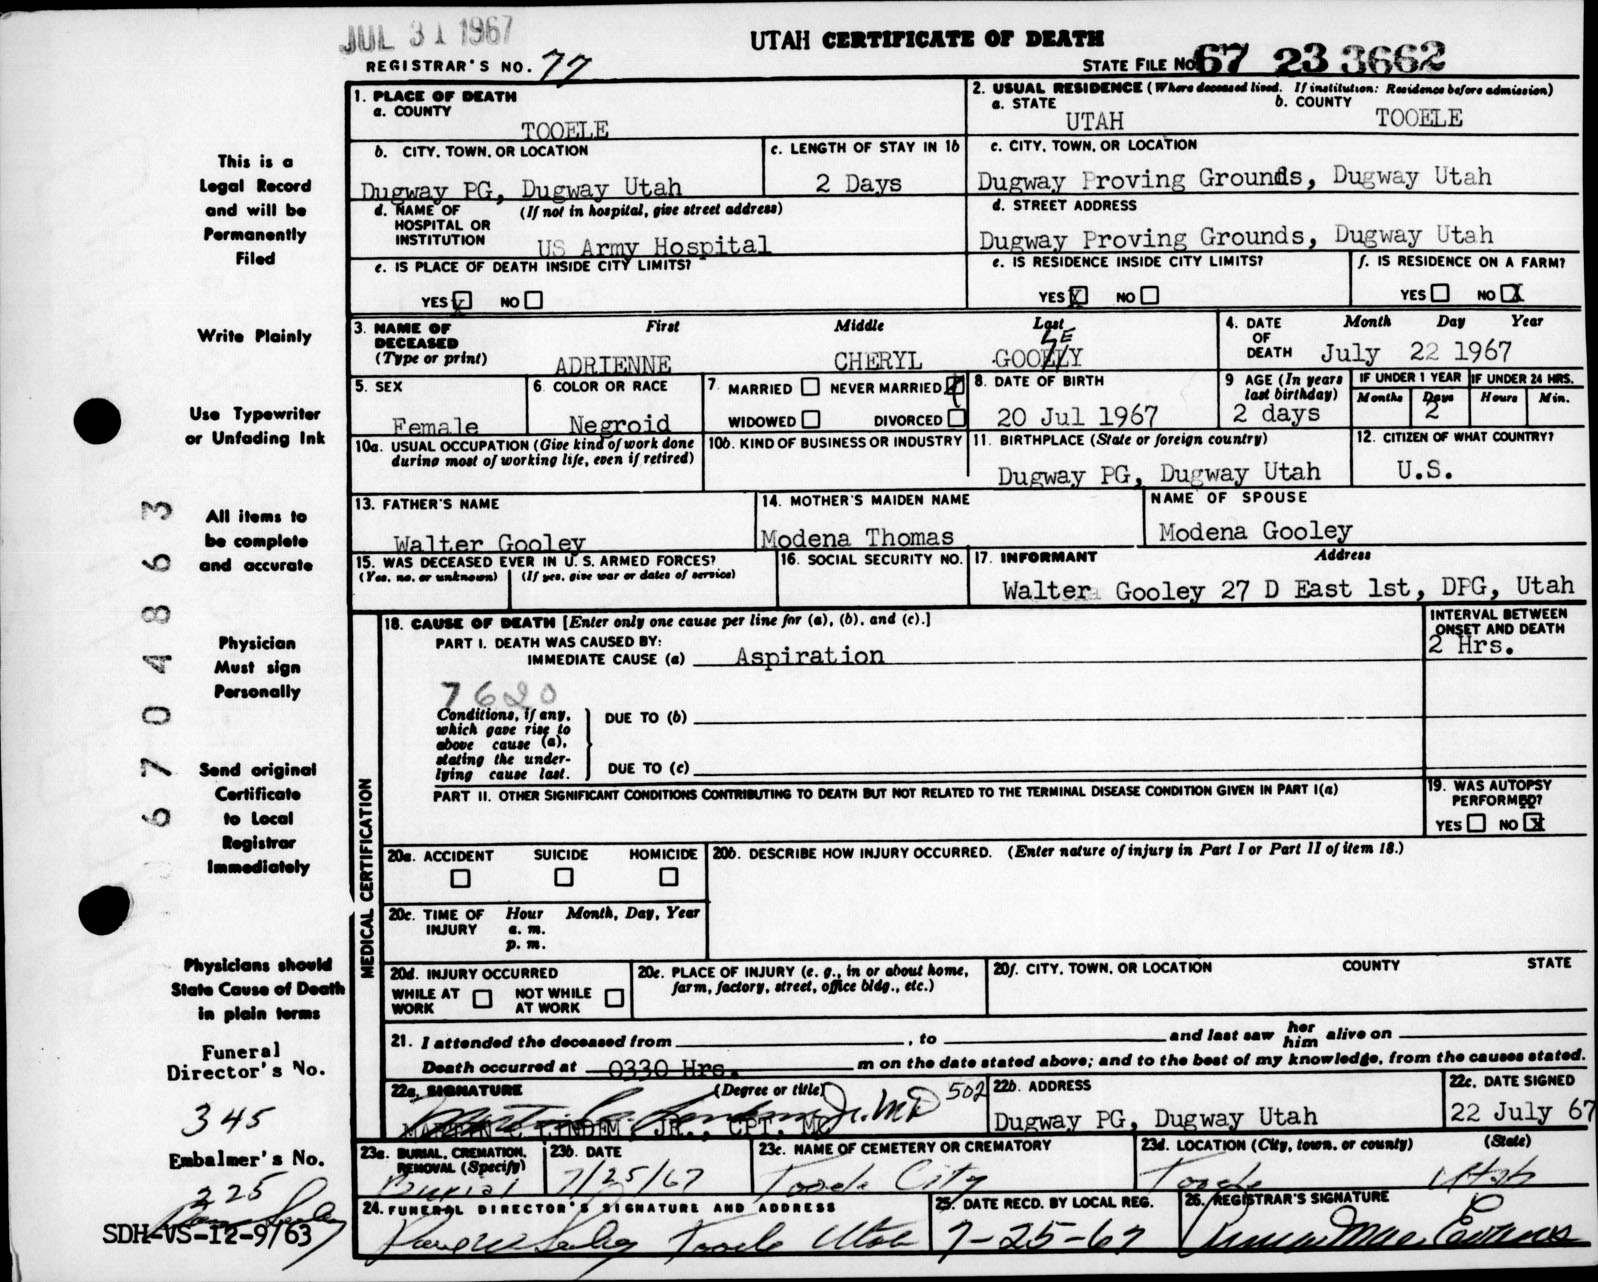 JUL 31 1967
UTAH CERTIFICATE OF DEATH
REGISTRAR'S NO. 77
STATE FILE NO 67 23 3662
1. PLACE OF DEATH
a. COUNTY
TOOELE
2. USUAL RESIDENCE (Where deceased lived. If institution: Residence before admission)
a. STATE b. COUNTY
UTAH TOOELE
b. CITY, TOWN, OR LOCATION
Dugway PG, Dugway Utah
c. LENGTH OF STAY IN 1b
2 Days
c. CITY, TOWN, OR LOCATION
Dugway Proving Grounds, Dugway Utah
d. NAME OF HOSPITAL OR INSTITUTION (If not in hospital, give street address)
US Army Hospital
d. STREET ADDRESS
Dugway Proving Grounds, Dugway Utah
e. IS PLACE OF DEATH INSIDE CITY LIMITS?
YES X NO
e. IS RESIDENCE INSIDE CITY LIMITS?
YES X NO
f. IS RESIDENCE ON A FARM?
YES NO X
3. NAME OF DECEASED (Type or print)
First Middle Last
ADRIENNE CHERYL GOOLEY
4. DATE OF DEATH Month Day Year
July 22 1967
5. SEX
Female
6. COLOR OR RACE
Negroid
7. MARRIED NEVER MARRIED
WIDOWED DIVORCED
8. DATE OF BIRTH
20 Jul 1967
9 AGE (In years last birthday)
2 days
IF UNDER 1 YEAR IF UNDER 24 HRS.
Months Days Hours Min.
2
10a. USUAL OCCUPATION (Give kind of work done during most of working life, even if retired)
10b. KIND OF BUSINESS OR INDUSTRY
11. BIRTHPLACE (State or foreign country)
Dugway PG, Dugway Utah
12. CITIZEN OF WHAT COUNTRY?
U.S.
13. FATHER'S NAME
Walter Gooley
14. MOTHER'S MAIDEN NAME
Modena Thomas
NAME OF SPOUSE
Modena Gooley
15. WAS DECEASED EVER IN U.S. ARMED FORCES?
(Yes, no, or unknown) (If yes, give war or dates of service)
16. SOCIAL SECURITY NO.
17. INFORMANT Address
Walter Gooley 27 D East 1st, DPG, Utah
18. CAUSE OF DEATH [Enter only one cause per line for (a), (b), and (c).]
PART I. DEATH WAS CAUSED BY:
IMMEDIATE CAUSE (a) Aspiration
INTERVAL BETWEEN ONSET AND DEATH
2 Hrs.
7620
Conditions, if any, which gave rise to above cause (a), stating the underlying cause last.
DUE TO (b)
DUE TO (c)
PART II. OTHER SIGNIFICANT CONDITIONS CONTRIBUTING TO DEATH BUT NOT RELATED TO THE TERMINAL DISEASE CONDITION GIVEN IN PART I(a)
19. WAS AUTOPSY PERFORMED?
YES NO X
MEDICAL CERTIFICATION
20a. ACCIDENT SUICIDE HOMICIDE
20b. DESCRIBE HOW INJURY OCCURRED. (Enter nature of injury in Part I or Part II of item 18.)
20c. TIME OF INJURY Hour Month, Day, Year
a. m.
p. m.
20d. INJURY OCCURRED
WHILE AT WORK NOT WHILE AT WORK
20e. PLACE OF INJURY (e. g., in or about home, farm, factory, street, office bldg., etc.)
20f. CITY, TOWN, OR LOCATION COUNTY STATE
21. I attended the deceased from , to and last saw her him alive on
Death occurred at 0330 Hrs. m on the date stated above; and to the best of my knowledge, from the causes stated.
22a. SIGNATURE (Degree or title)
Jr. MD 502
MARTIN C LINDEM, JR., CPT, MC
22b. ADDRESS
Dugway PG, Dugway Utah
22c. DATE SIGNED
22 July 67
23a. BURIAL, CREMATION, REMOVAL (Specify)
Burial
23b. DATE
7/25/67
23c. NAME OF CEMETERY OR CREMATORY
Tooele City
23d. LOCATION (City, town, or county) (State)
Tooele Utah
24. FUNERAL DIRECTOR'S SIGNATURE AND ADDRESS
Tooele Utah
25. DATE RECD. BY LOCAL REG.
7-25-67
26. REGISTRAR'S SIGNATURE
Mae Evans
This is a
Legal Record
and will be
Permanently
Filed
Write Plainly
Use Typewriter
or Unfading Ink
All items to
be complete
and accurate
Physician
Must sign
Personally
Send original
Certificate
to Local
Registrar
Immediately
Physicians should
State Cause of Death
in plain terms
Funeral
Director's No.
345
Embalmer's No.
225
SDH-VS-12-9/63
67048863